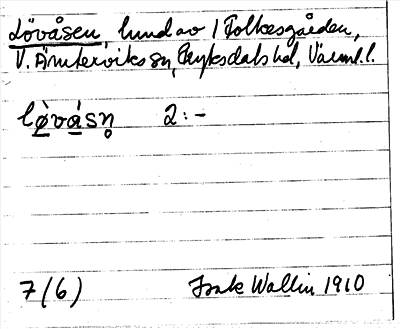 Lövåsen, hmd av 1 Folkesgården,
V. Ämterviks sn, Fryksdals hd, Värml. l.
lø̀vàsn̥ 2:-
7(6) Isak Wallin 1910